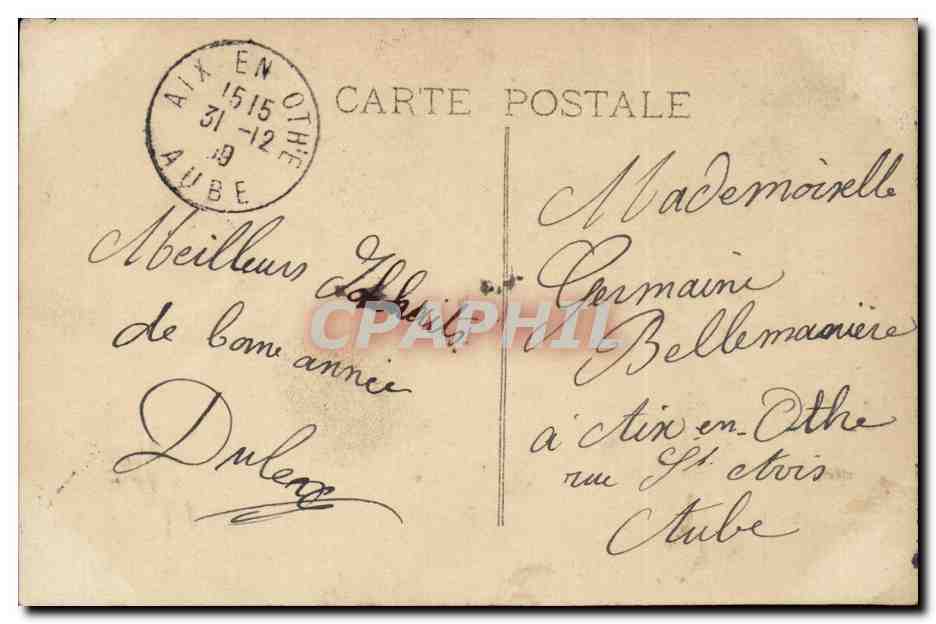 AIX EN OTHE
15 15
31 -12
AUBE
CARTE POSTALE
Meilleurs
de bonne année
Mademoiselle
Germaine
Bellemanière
à Aix-en-Othe
rue St Avis
Aube
CPAPHIL